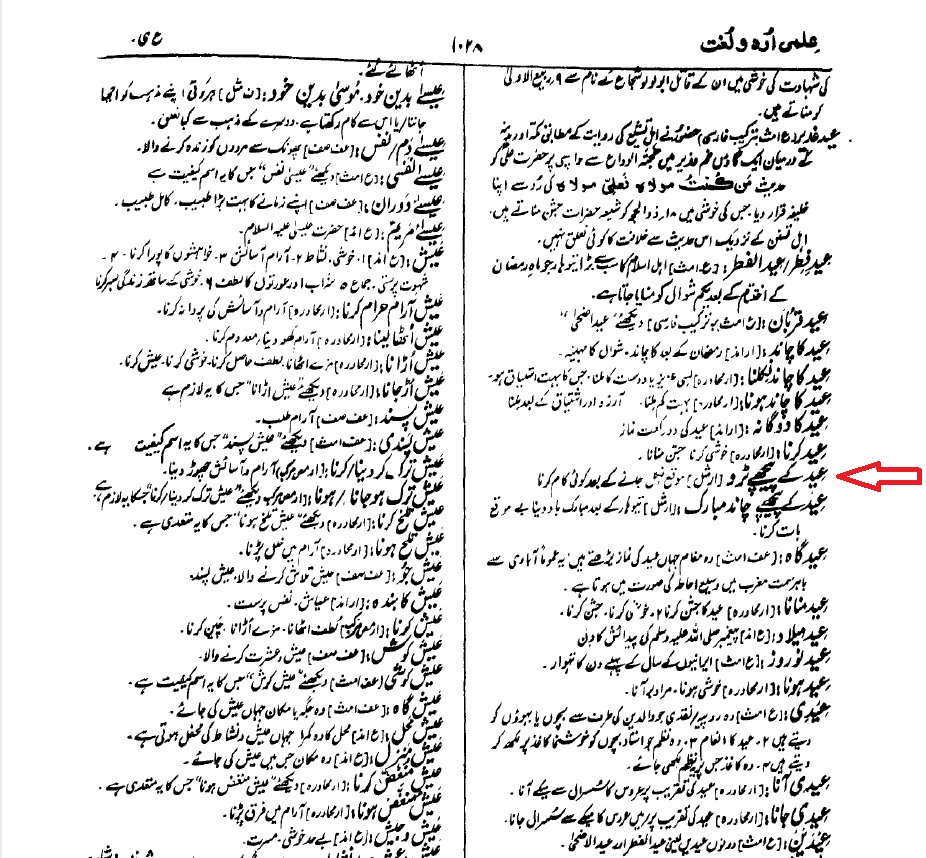 علمی اردو لغت
۱۰۲۸
ع ی
کی شہادت کی خوشی میں ان کے قاتل ابولولو شجاع کے نام سے ۹ ربیع الاول
کو مناتے ہیں
عید غدیر: (ع امث) بترکیب فارسی) حضور نے اہل تشیع کی روایت کے مطابق مکہ اور مدینہ
کے درمیان ایک گاؤں خم غدیر میں حجۃ الوداع سے واپسی پر حضرت علی کو
حدیث من کنت مولاہ فعلی مولاہ کی رُو سے اپنا
خلیفہ قرار دیا۔ جس کی خوشی میں ۱۸ ذوالحجہ کو شیعہ حضرات جشن مناتے ہیں۔
اہل تسنن کے نزدیک اس حدیث سے خلافت کا کوئی تعلق نہیں۔
عید فطر/عید الفطر: [ع امث] اہل اسلام کا سب سے بڑا تیوہار جو ماہ رمضان
کے اختتام کے بعد یکم شوال کو منایا جاتا ہے۔
عید قربان: [ع امث بہ ترکیب فارسی] دیکھئے "عید الضحیٰ"
عید کا چاند: [ار امذ] رمضان کے بعد کا چاند۔ شوال کا مہینہ۔
عید کا چاند نکلنا: [ار محاورہ] کسی عزیز یا دوست کا ملنا۔ جس کا بہت اشتیاق ہو۔
عید کا چاند ہونا: [ار محاورہ] بہت کم ملنا۔ آرزو اور اشتیاق کے بعد ملنا
عید کا دوگانہ: [ار امذ] عید کی دو رکعت نماز
عید کرنا: [ار محاورہ] خوشی کرنا۔ جشن منانا۔
عید کے پیچھے ٹرو [ار مثل] موقع نکل جانے کے بعد کوئی کام کرنا
عید کے پیچھے چاند مبارک: [ار مثل] تیوہار کے بعد مبارک باد دینا بے موقع
بات کرنا۔
عید گاہ: [ع ف امث] وہ مقام جہاں عید کی نماز پڑھتے ہیں یہ عموماً آبادی سے
باہر سمت مغرب میں وسیع احاطہ کی صورت میں ہوتا ہے۔
عید منانا: [ار محاورہ] عید کا جشن کرنا ۲۔ خوشی کرنا۔ جشن کرنا۔
عید میلاد: [ع امذ] پیغمبر صلی اللہ علیہ وسلم کی پیدائش کا دن
عید نوروز: [ع امث] ایرانیوں کے سال کے پہلے دن کا تہوار۔
عید ہونا: [ار محاورہ] خوشی ہونا۔ مراد بر آنا۔
عیدی: [ع امث] وہ روپیہ/نقدی جو والدین کی طرف سے بچوں یا بہوؤں کو
دیتے ہیں ۲۔ عید کا انعام ۳۔ وہ نظم جو استاد بچوں کو خوشنما کاغذ پر لکھ کر
دیتے ہیں ۴۔ وہ کاغذ جس پر یہ نظم لکھی جائے۔
عیدی آنا: [ار محاورہ] عید کی تقریب پر عروس کا سسرال سے میکے آنا۔
عیدی جانا: [ار محاورہ] عید کی تقریب پر میں عروس کا میکے سے سسرال جانا۔
عیدین: [ع امث] دونوں عیدیں یعنی عید الفطر اور عید الاضحیٰ
اُٹھائے گئے۔
عیسیٰ بدین خود، موسیٰ بدین خود: [ف مثل] ہر کوئی اپنے مذہب کو اچھا
جانتا/یا اس سے کام رکھتا ہے۔ دوسرے کے مذہب سے کیا تعلق۔
عیسیٰ دم/نفس: [ع ف صف] پھونک سے مُردوں کو زندہ کرنے والا۔
عیسیٰ نفسی: [ع امث] دیکھئے "عیسیٰ نفس" جس کا یہ اسم کیفیت ہے
عیسیٰ دوراں: [ع ف صف] اپنے زمانے کا بہت بڑا طبیب۔ کامل طبیب۔
عیسیٰ مریم: [ع امذ] حضرت عیسیٰ علیہ السلام۔
عیش: [ع امذ] ۱۔ خوشی۔ نشاط ۲۔ آرام آسائش ۳۔ خواہشوں کا پورا کرنا۔ ۴۔
شہوت پرستی۔ جماع ۵۔ شراب اور عورتوں کا لطف ۶۔ خوشی کے ساتھ زندگی بسر کرنا
عیش آرام حرام کرنا: [ار محاورہ] آرام و آسائش کی پروا نہ کرنا۔
عیش اُٹھا لینا: [ار محاورہ] آرام کھو دینا۔ معدوم کرنا۔
عیش اُڑانا: [ار محاورہ] مزے اڑانا۔ لطف حاصل کرنا۔ خوشی کرنا۔ عیش کرنا۔
عیش اُڑ جانا: [ار محاورہ] دیکھئے "عیش اڑانا" جس کا یہ لازم ہے
عیش پسند: [ع ف صف] آرام طلب۔
عیش پسندی: [ع ف امث] دیکھئے "عیش پسند" جس کا یہ اسم کیفیت ہے۔
عیش ترک کر دینا/کرنا: [ار مع مرکب] آرام و آسائش چھوڑ دینا۔
عیش ترک ہو جانا/ہونا: [ار مع مرکب] دیکھئے "عیش ترک کر دینا/کرنا" جس کا یہ لازم ہے
عیش تلخ کرنا: [ار محاورہ] دیکھئے "عیش تلخ ہونا" جس کا یہ متعدی ہے۔
عیش تلخ ہونا: [ار محاورہ] آرام میں خلل پڑنا۔
عیش جُو: [ع ف صف] عیش تلاش کرنے والا۔ عیش پسند۔
عیش کا بندہ: [ار امذ] عیاش۔ نفس پرست۔
عیش کرنا: [ار مع مرکب] لطف اٹھانا۔ مزے اڑانا۔ چین کرنا۔
عیش کوش: [ع ف صف] عیش و عشرت کرنے والا۔
عیش کوشی: [ع ف امث] دیکھئے "عیش کوش" جس کا یہ اسم کیفیت ہے۔
عیش گاہ: [ع ف امث] وہ جگہ یا مکان جہاں عیش کی جائے۔
عیش محل: [ع امذ] محل کا وہ کمرا جہاں عیش و نشاط کی محفل ہوتی ہے۔
عیش منزل: [ع امذ] وہ مکان جس میں عیش کی جائے۔
عیش منغص کرنا: [ار محاورہ] دیکھئے "عیش منغص ہونا" جس کا یہ متعدی ہے۔
عیش منغص ہونا: [ار محاورہ] آرام میں فرق پڑنا۔
عیش و جیش: [ع امذ] بے حد خوشی۔ مسرت۔